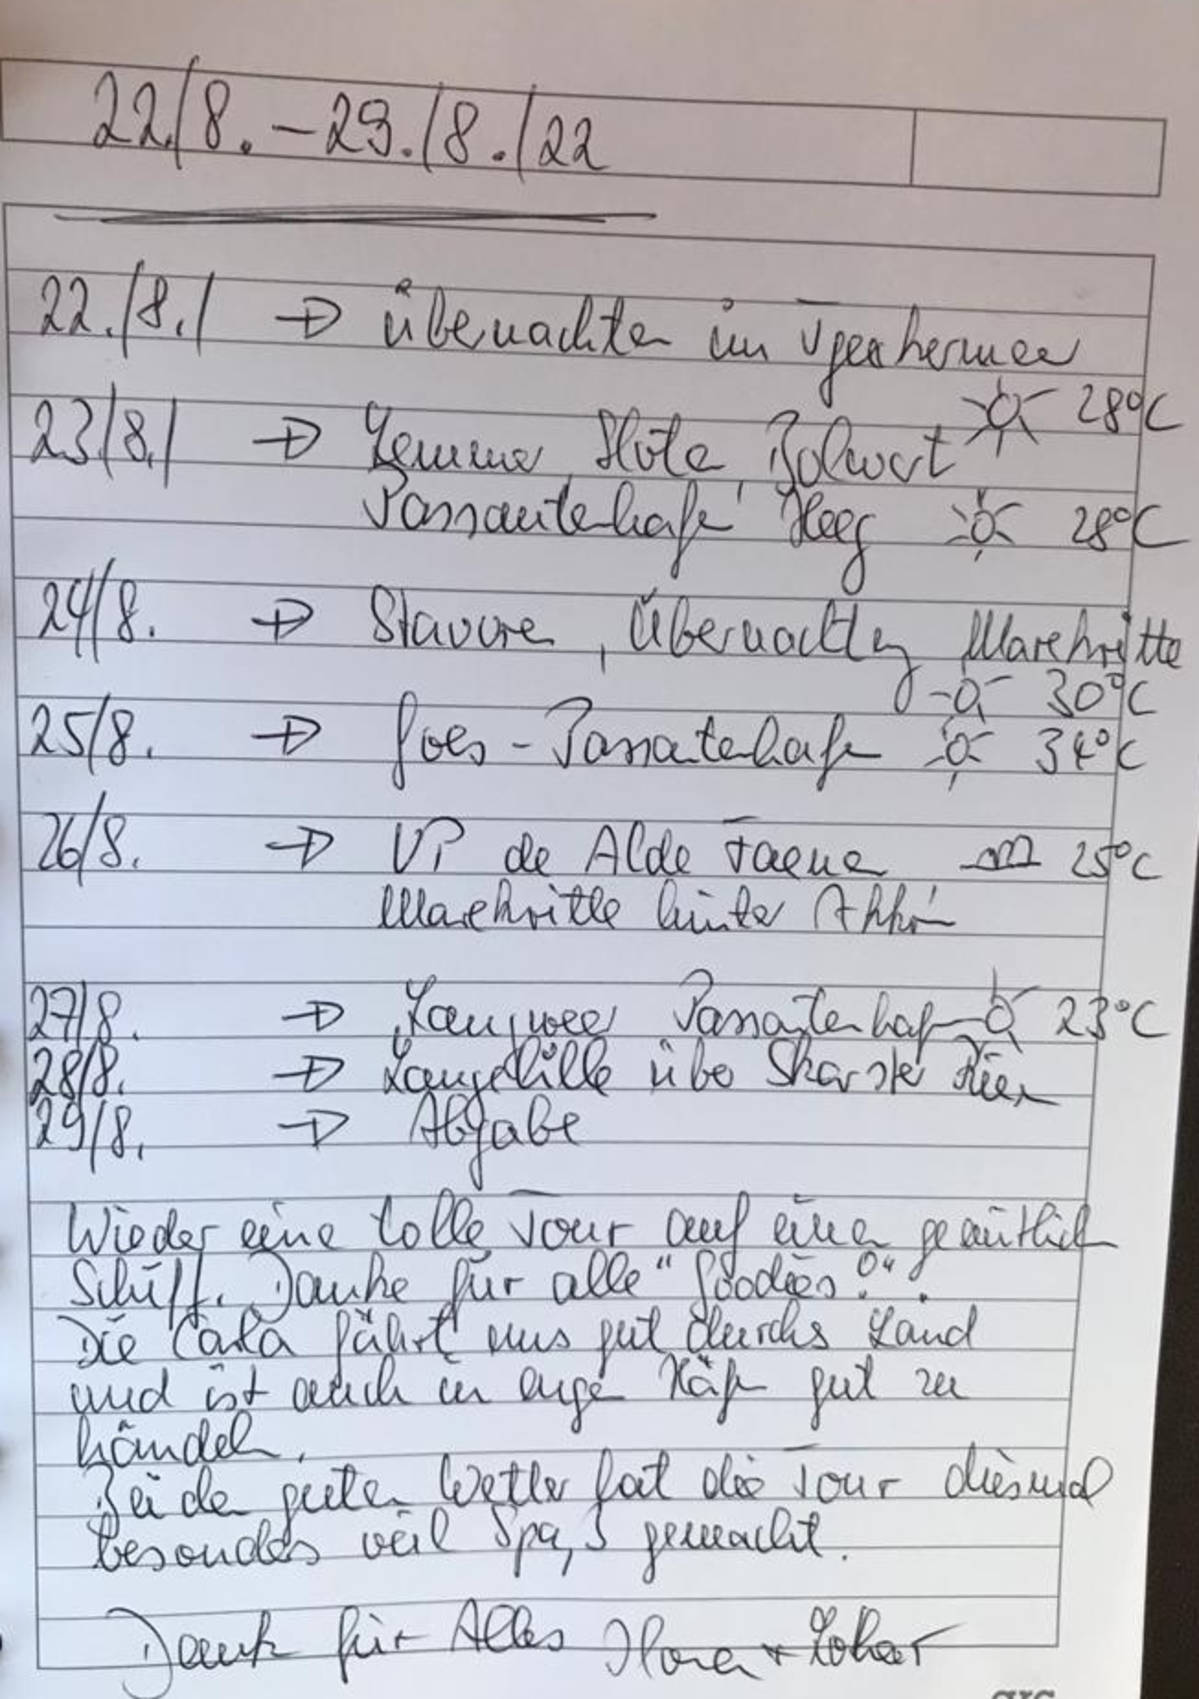 22./8. – 29./8./22
22./8./ → übernachten im Tjeukermeer
28°C
23/8./ → Lemmer, Sloten, Bolwart
Passantenhafen Heeg 28°C
24/8. → Stavoren, Übernachtg Marekritte
30°C
25/8. → Joes - Passantenhafen 34°C
26/8. → VP de Alde Faenen 25°C
Marekritte hinter
27/8. → Langweer Passantenhafen 23°C
28/8. → Langelille über Skarster Rien
29/8. → Abgabe
Wieder eine tolle Tour auf einen gemütlichen
Schiff. Danke für alle "Goodies!".
Die fährt uns gut durchs Land
und ist auch in enge Häfen gut zu
händeln.
Bei dem guten Wetter hat die Tour diesmal
besonders viel Spaß gemacht.
Dank für Alles + Lothar